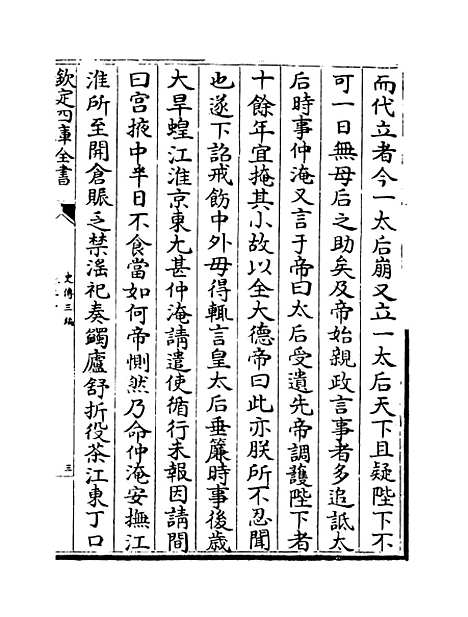 而代立者今一太后崩又立一太后天下且疑陛下不
可一日無母后之助矣及帝始親政言事者多追詆太
后時事仲淹又言于帝曰太后受遺先帝調護陛下者
十餘年宜掩其小故以全大德帝曰此亦朕所不忍聞
也遂下詔戒飭中外毋得輒言皇太后垂簾時事後歲
大旱蝗江淮京東尤甚仲淹請遣使循行未報因請間
曰宫掖中半日不食當如何帝惻然乃命仲淹安撫江
淮所至開倉賑乏禁滛祀奏蠲廬舒折役茶江東丁口
欽定四庫全書
史傳三編
三